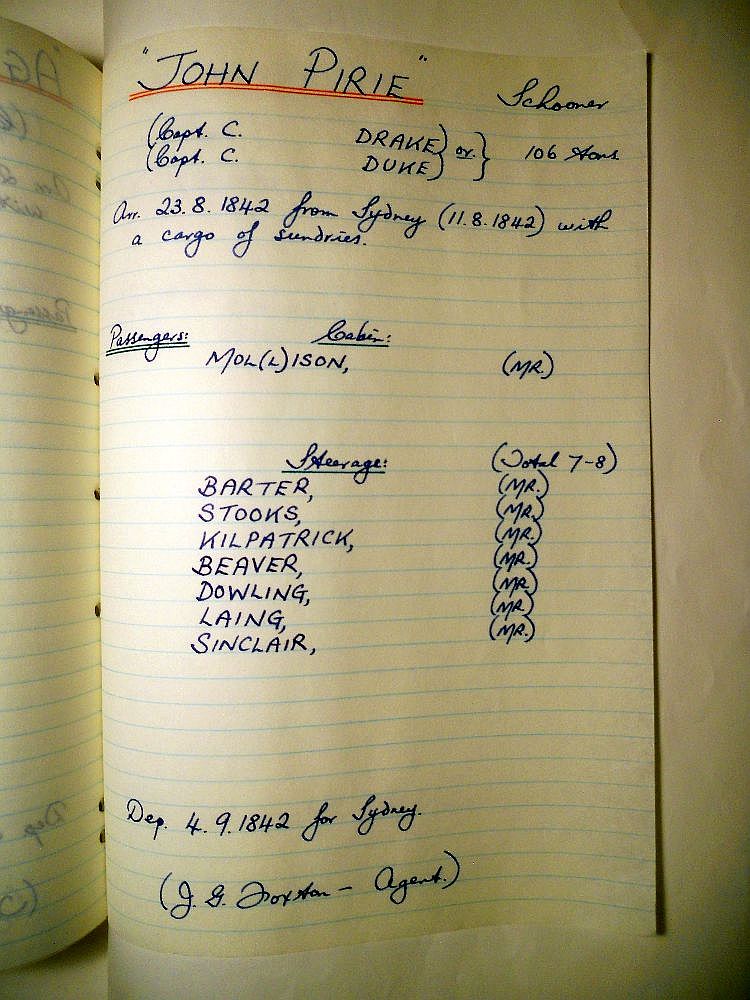 "JOHN PIRIE" Schooner
(Capt. C. DRAKE) or } 106 tons
(Capt. C. DUKE)
Arr. 23.8.1842 from Sydney (11.8.1842) with
a cargo of sundries.
Passengers: Cabin:
MOL(L)ISON, (MR.)
Steerage: (Total 7-8)
BARTER, (MR.)
STOOKS, (MR.)
KILPATRICK, (MR.)
BEAVER, (MR.)
DOWLING, (MR.)
LAING, (MR.)
SINCLAIR, (MR.)
Dep. 4.9.1842 for Sydney.
(J. G. Foxton - Agent.)